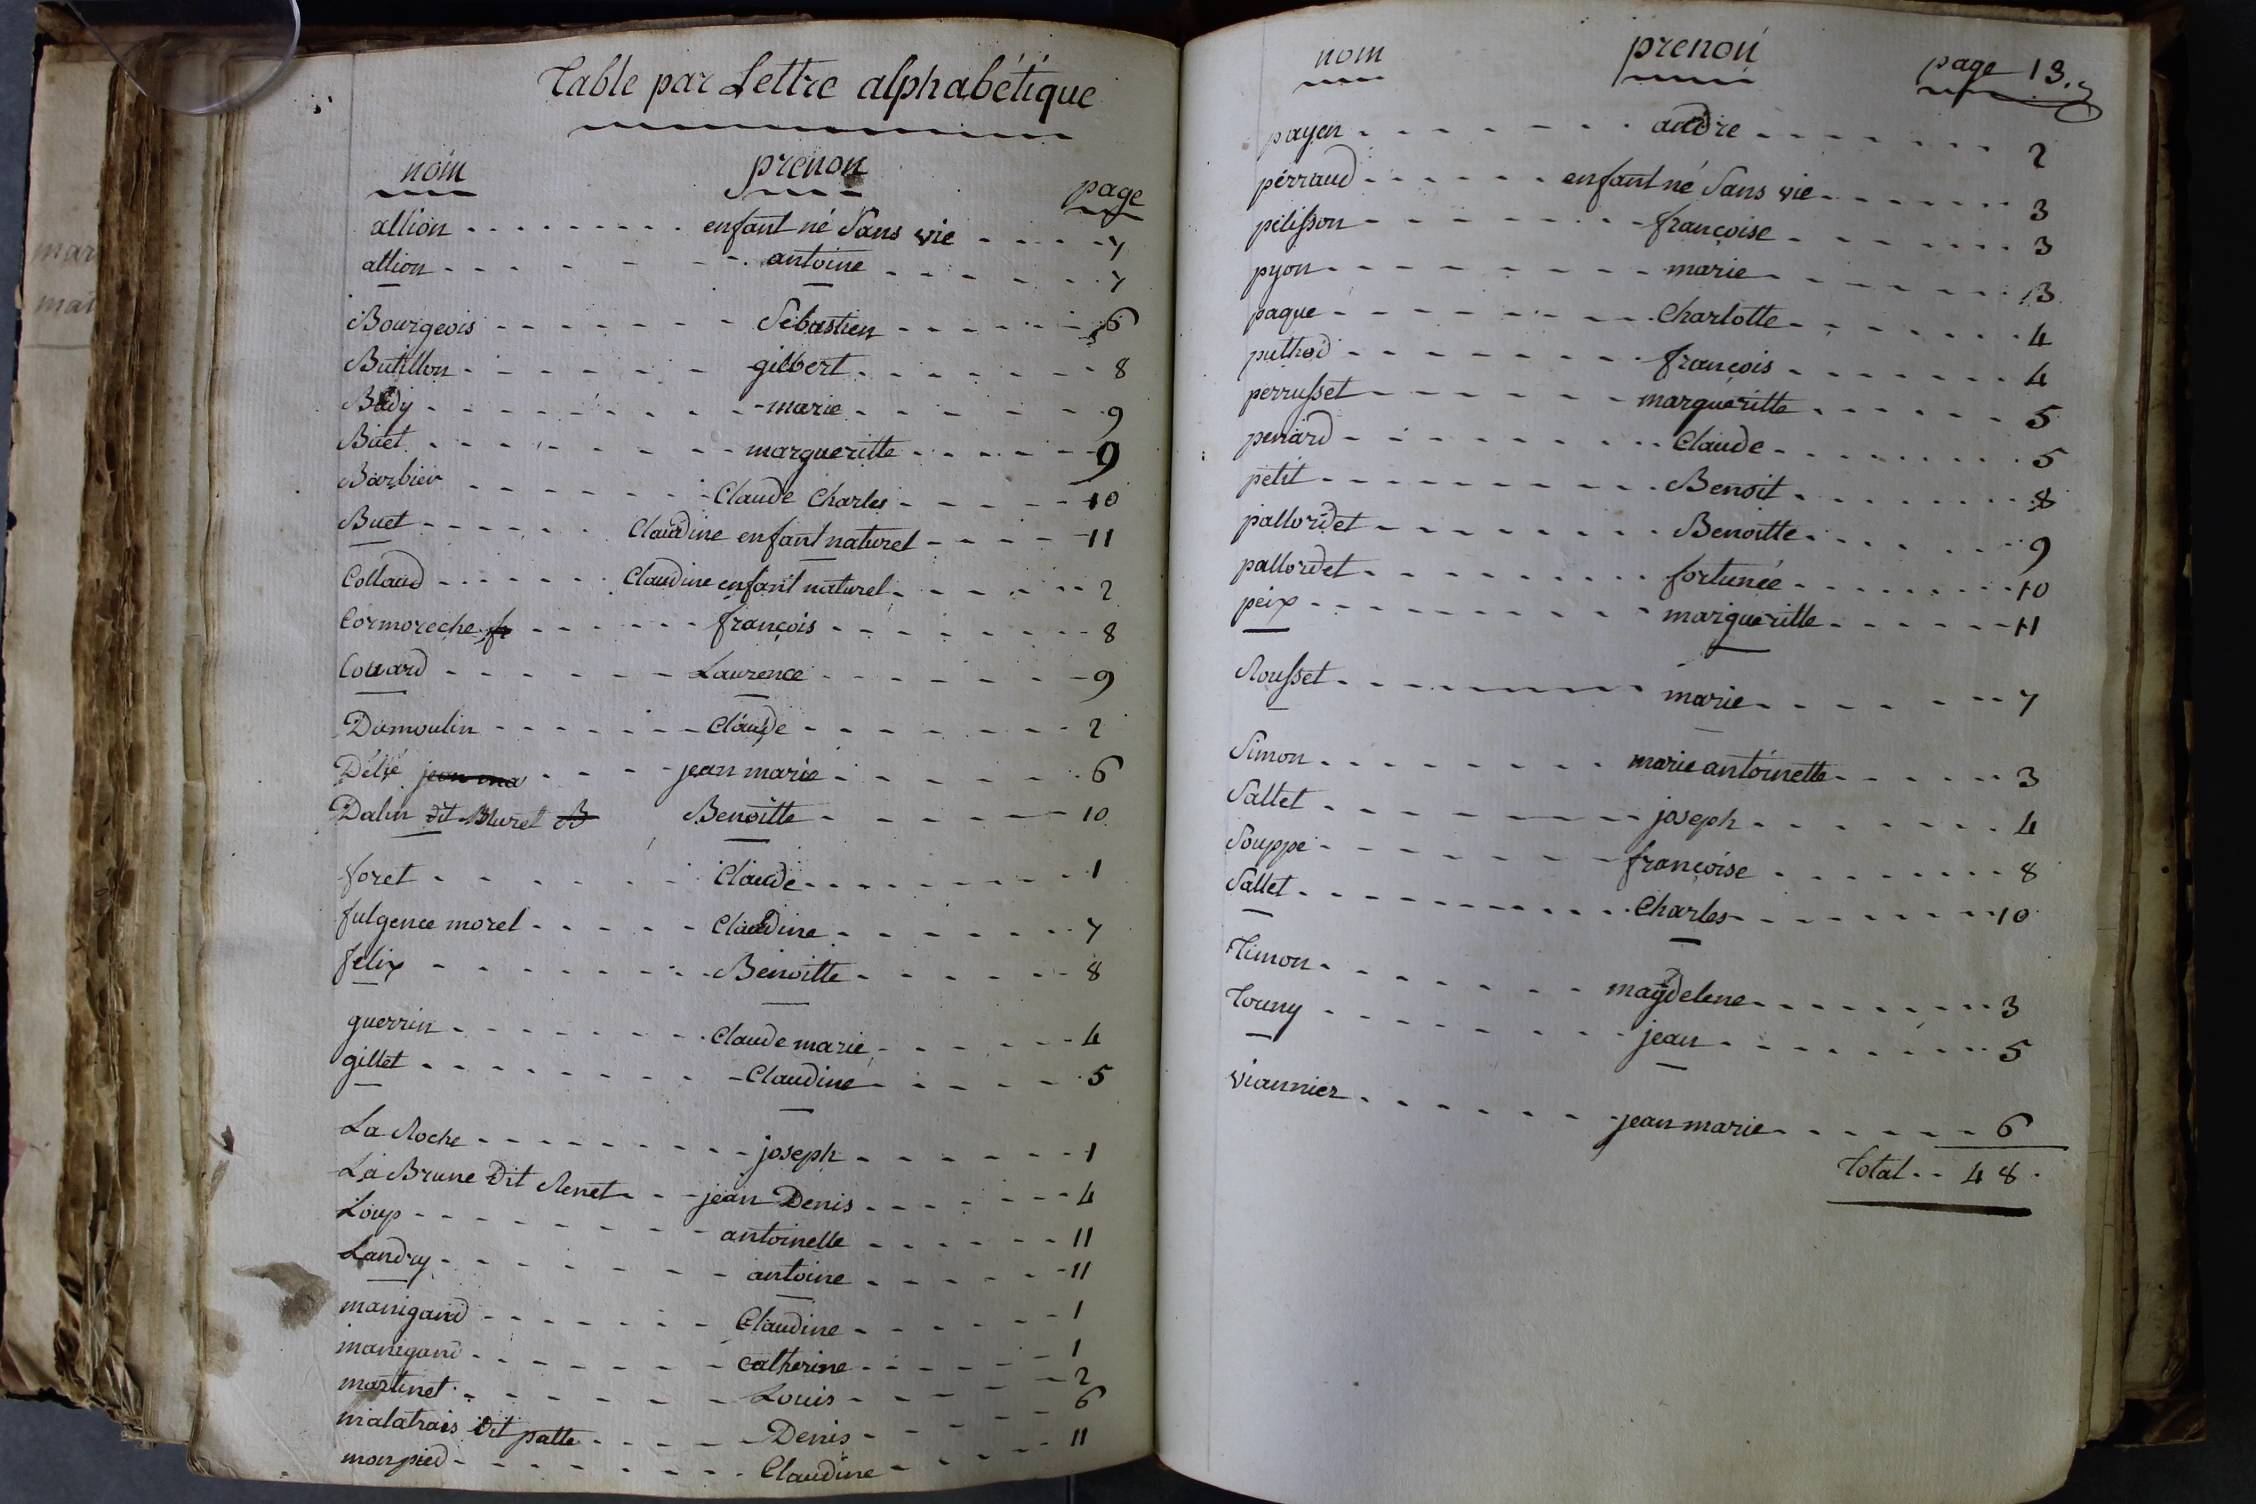 Table par Lettre alphabétique
nom prenom page
allion enfant né Sans vie 7
allion antoine 7
Bourgeois Sébastien 6
Butillon gilbert 8
Bady marie 9
Buet margueritte 9
Barbier Claude Charles 10
Buet Claudine enfant naturel 11
Collaud Claudine enfant naturel 2
Cormoreche françois 8
Couard Laurence 9
Dumoulin Claude 2
Délié jean ma jean marie 6
Dalin dit Bluret B Benoitte 10
foret Claude 1
fulgence morel Claudine 7
felix Benoitte 8
guerrin Claude marie 4
gillet Claudine 5
La Roche joseph 1
La Brune Dit Renet jean Denis 4
Loup antoinette 11
Landry antoine 11
manigand Claudine 1
manigand catherine 1
martinet Louis 2
malatrais dit patte Denis 6
monpied Claudine 11
mar
mar
nom prenom page 13.
payen andre 2
perraud enfant né Sans vie 3
pelisson françoise 3
pyon marie 3
paque Charlotte 4
puthod françois 4
perrusset margueritte 5
penard Claude 5
petit Benoit 8
pallordet Benoitte 9
pallordet fortunée 10
peix margueritte 11
Rousset marie 7
Simon marie antoinette 3
Sallet joseph 4
Souppe françoise 8
Sallet Charles 10
Timon magdelene 3
Touny jean 5
viannier jean marie 6
Total 48